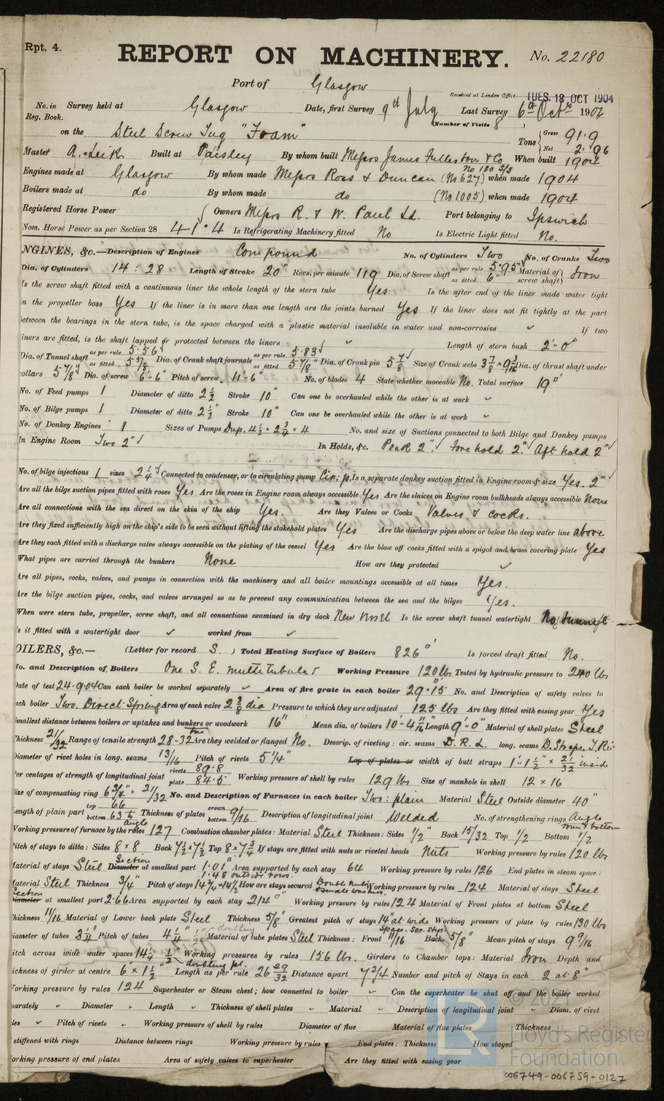 Rpt. 4.
REPORT ON MACHINERY. No. 22180
Port of Glasgow
Received at London Office TUES. 18 OCT 1904
No. in Survey held at Glasgow Date, first Survey 9th July Last Survey 6th Octr 1904
Reg. Book. (Number of Visits 8
on the Steel Screw Tug "Foam" Tons Gross 91.9 Net 2.96
Master A. Leik Built at Paisley By whom built Messrs James Fullerton & Co When built 1904
Engines made at Glasgow By whom made Messrs Ross & Duncan (No 627) when made 1904
Boilers made at do By whom made do (No 1005) when made 1904
Registered Horse Power Owners Messrs R. & W. Paul Ld. Port belonging to Ipswich
Nom. Horse Power as per Section 28 41.4 Is Refrigerating Machinery fitted No Is Electric Light fitted No.
NGINES, &c.—Description of Engines Compound No. of Cylinders Two No. of Cranks Two
Dia. of Cylinders 14 : 28 Length of Stroke 20" Revs. per minute 119 Dia. of Screw shaft as per rule 5.95 as fitted 6" Material of screw shaft Iron
Is the screw shaft fitted with a continuous liner the whole length of the stern tube Yes Is the after end of the liner made water tight
in the propeller boss Yes If the liner is in more than one length are the joints burned Yes If the liner does not fit tightly at the part
between the bearings in the stern tube, is the space charged with a plastic material insoluble in water and non-corrosive " If two
liners are fitted, is the shaft lapped or protected between the liners " Length of stern bush 2'-0"
Dia. of Tunnel shaft as per rule 5.56 as fitted 5 7/8 Dia. of Crank shaft journals as per rule 5.83 as fitted 5 7/8" Dia. of Crank pin 5 7/8 Size of Crank webs Dia. of thrust shaft under
collars 5 7/8" Dia. of screw 6'-6" Pitch of screw 11'-6" No. of blades 4 State whether moveable No. Total surface 19□'
No. of Feed pumps 1 Diameter of ditto 2 1/2 Stroke 10" Can one be overhauled while the other is at work "
No. of Bilge pumps 1 Diameter of ditto 2 1/2" Stroke 10" Can one be overhauled while the other is at work "
No. of Donkey Engines 1 Sizes of Pumps Dup. 4 1/2 × 2 3/4 × 4 No. and size of Suctions connected to both Bilge and Donkey pumps
In Engine Room Two 2" In Holds, &c. Peak 2" Fore hold 2" Aft hold 2"
No. of bilge injections 1 sizes 2 1/4 Connected to condenser, or to circulating pump Cir. p. Is a separate donkey suction fitted in Engine room & size Yes. 2"
Are all the bilge suction pipes fitted with roses Yes Are the roses in Engine room always accessible Yes Are the sluices on Engine room bulkheads always accessible None
Are all connections with the sea direct on the skin of the ship Yes. Are they Valves or Cocks Valves & cocks.
Are they fixed sufficiently high on the ship's side to be seen without lifting the stokehold plates Yes Are the discharge pipes above or below the deep water line above
Are they each fitted with a discharge valve always accessible on the plating of the vessel Yes Are the blow off cocks fitted with a spigot and brass covering plate Yes
What pipes are carried through the bunkers None How are they protected
Are all pipes, cocks, valves, and pumps in connection with the machinery and all boiler mountings accessible at all times Yes.
Are the bilge suction pipes, cocks, and valves arranged so as to prevent any communication between the sea and the bilges Yes.
When were stern tube, propeller, screw shaft, and all connections examined in dry dock New Vessel Is the screw shaft tunnel watertight No tunnel
Is it fitted with a watertight door worked from
OILERS, &c.— (Letter for record S.) Total Heating Surface of Boilers 826□' Is forced draft fitted No.
No. and Description of Boilers One S. E. multitubular Working Pressure 120 lbs Tested by hydraulic pressure to 240 lbs
Date of test 24.9.04 Can each boiler be worked separately Area of fire grate in each boiler 29.15 No. and Description of safety valves to
each boiler Two. Direct Spring Area of each valve 2 3/8 dia Pressure to which they are adjusted 125 lbs Are they fitted with easing gear Yes
Smallest distance between boilers or uptakes and bunkers or woodwork 16" Mean dia. of boilers Length 9'-0" Material of shell plates Steel
Thickness 21/32 Range of tensile strength 28-32 Are they welded or flanged No. Descrip. of riveting : cir. seams D. R. L. long. seams
Diameter of rivet holes in long. seams 13/16 Pitch of rivets 5 1/4" Lap of plates or width of butt straps
Per centages of strength of longitudinal joint rivets 89.8 plate 84.5 Working pressure of shell by rules 129 lbs Size of manhole in shell 12 × 16
Size of compensating ring 6 3/4" × 21/32 No. and Description of Furnaces in each boiler Two : plain Material Steel Outside diameter 40"
Length of plain part top 66 bottom Thickness of plates crown bottom 9/16 Description of longitudinal joint Welded No. of strengthening rings
Working pressure of furnace by the rules 127 Combustion chamber plates : Material Steel Thickness : Sides 1/2" Back 15/32 Top 1/2 Bottom 1/2
Pitch of stays to ditto : Sides 8 × 8 Back 7 1/2 × 7 1/2 Top 8 × 7 3/4 If stays are fitted with nuts or riveted heads Nuts Working pressure by rules 120 lbs
Material of stays Steel Diameter at smallest part 1.01 Area supported by each stay 64 Working pressure by rules 126 End plates in steam space :
Material Steel Thickness 3/4 Pitch of stays How are stays secured Working pressure by rules 124 Material of stays Steel
Diameter at smallest part 2.66 Area supported by each stay 214" Working pressure by rules 124 Material of Front plates at bottom Steel
Thickness 11/16 Material of Lower back plate Steel Thickness 5/8" Greatest pitch of stays Working pressure of plate by rules 130 lbs
Diameter of tubes 3 1/4 Pitch of tubes Material of tube plates Steel Thickness : Front 11/16 Back 5/8" Mean pitch of stays 9 9/16
Pitch across wide water spaces Working pressures by rules 156 lbs. Girders to Chamber tops : Material Iron Depth and
thickness of girder at centre Length as per rule Distance apart 7 3/4 Number and pitch of Stays in each 2 at 8"
Working pressure by rules 124 Superheater or Steam chest ; how connected to boiler Can the superheater be shut off and the boiler worked
separately Diameter Length Thickness of shell plates Material Description of longitudinal joint Diam. of rivet
holes Pitch of rivets Working pressure of shell by rules Diameter of flue Material of flue plates Thickness
stiffened with rings Distance between rings Working pressure by rules End plates : Thickness How stayed
Working pressure of end plates Area of safety valves to superheater Are they fitted with easing gear
LR
Lloyd's Register
Foundation
006749-006759-0127